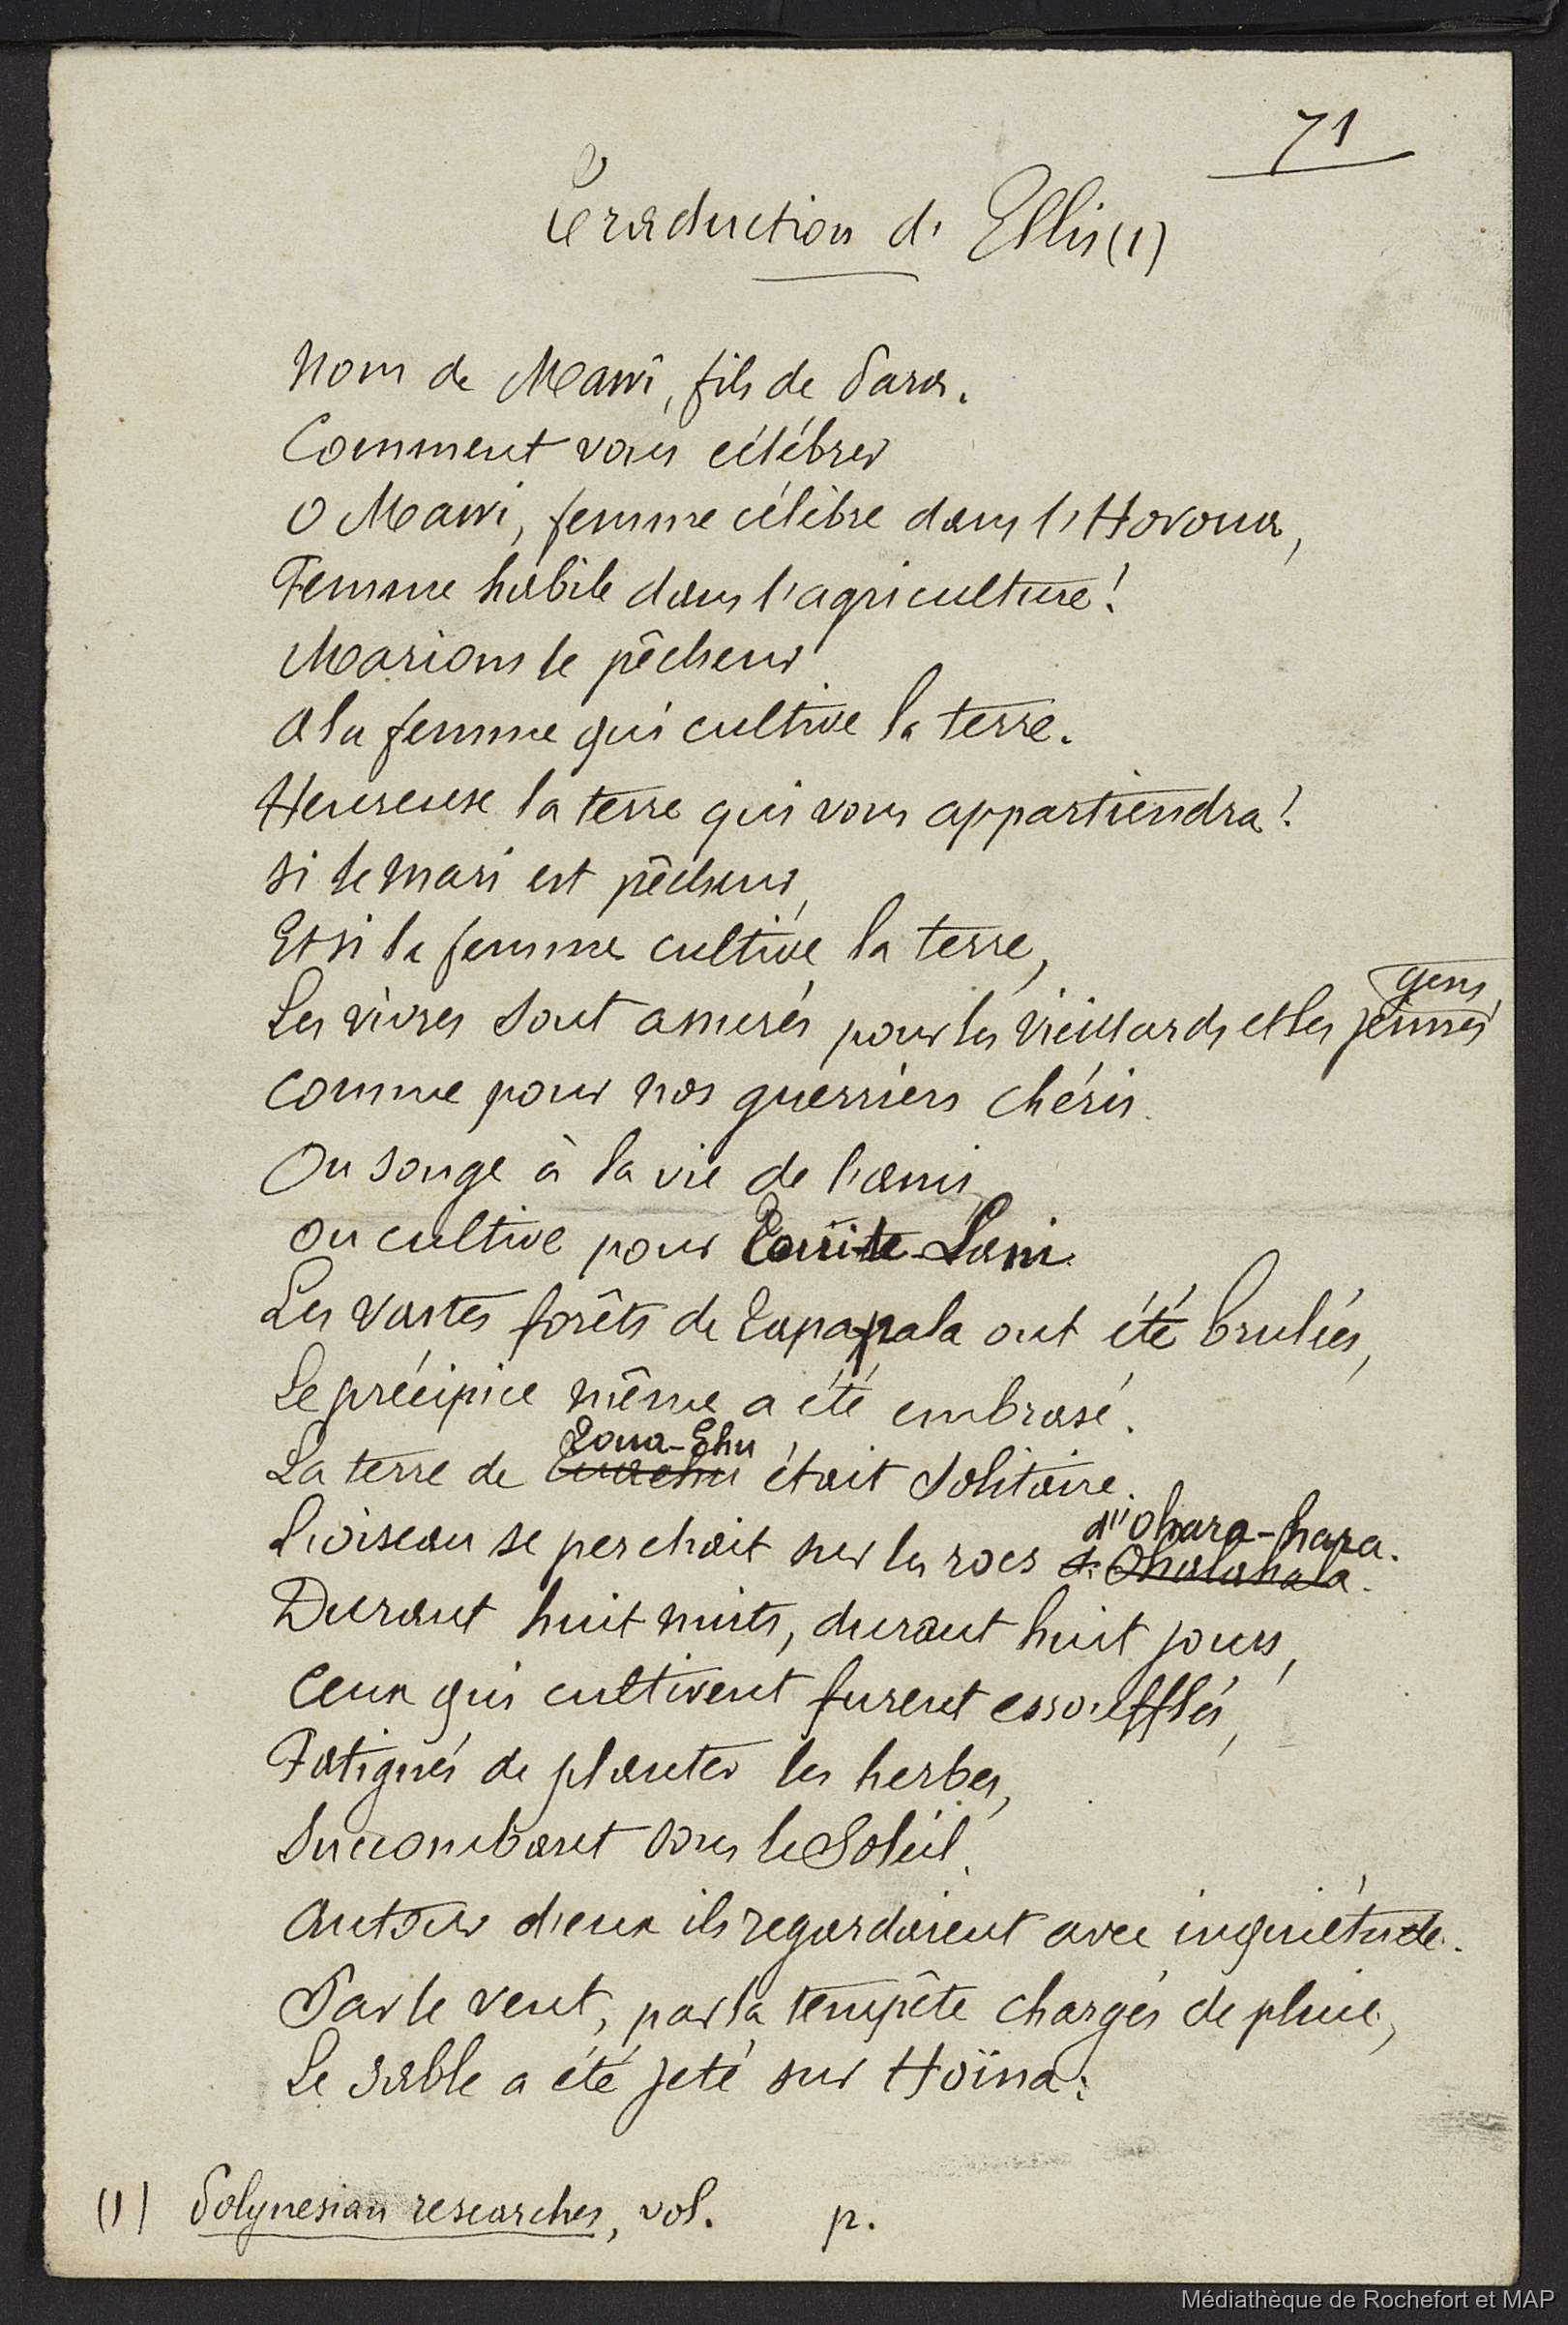 71
Traduction d'Ellis (1)
Nom de Mawi, fils de Para.
Comment vous célébrer
O Mawi, femme célèbre dans l'Horoua,
Femme habile dans l'agriculture!
Marions le pêcheur
A la femme qui cultive la terre.
Heureuse la terre qui vous appartiendra!
Si le mari est pêcheur,
Et si la femme cultive la terre,
gens
Les vivres sont assurés pour les vieillards et les jeunes
Comme pour nos guerriers chéris.
On songe à la vie de l'ami,
On cultive pour Lani.
Les vastes forêts de Tapapala ont été brulées,
Le précipice même a été embrasé.
Toua-Ehu
La terre de Tuaehu était solitaire.
d'Ohara-hara.
L'oiseau se perchait sur les rocs d'Ohalahala.
Durant huit nuits, durant huit jours,
Ceux qui cultivent furent essoufflés,
Fatigués de planter les herbes,
Succombant sous le Soleil.
Autour d'eux ils regardaient avec inquiétude.
Par le vent, par la tempête chargés de pluie,
Le sable a été jeté sur Hoïna:
(1) Polynesian researches, vol. p.
Médiathèque de Rochefort et MAP